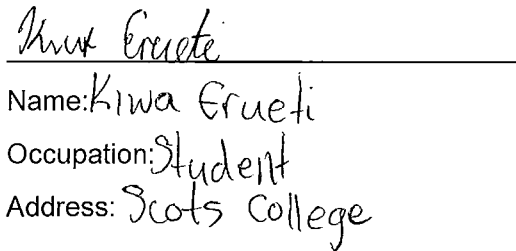 Kiwa Erueti
Name: Kiwa Erueti
Occupation: Student
Address: Scots College